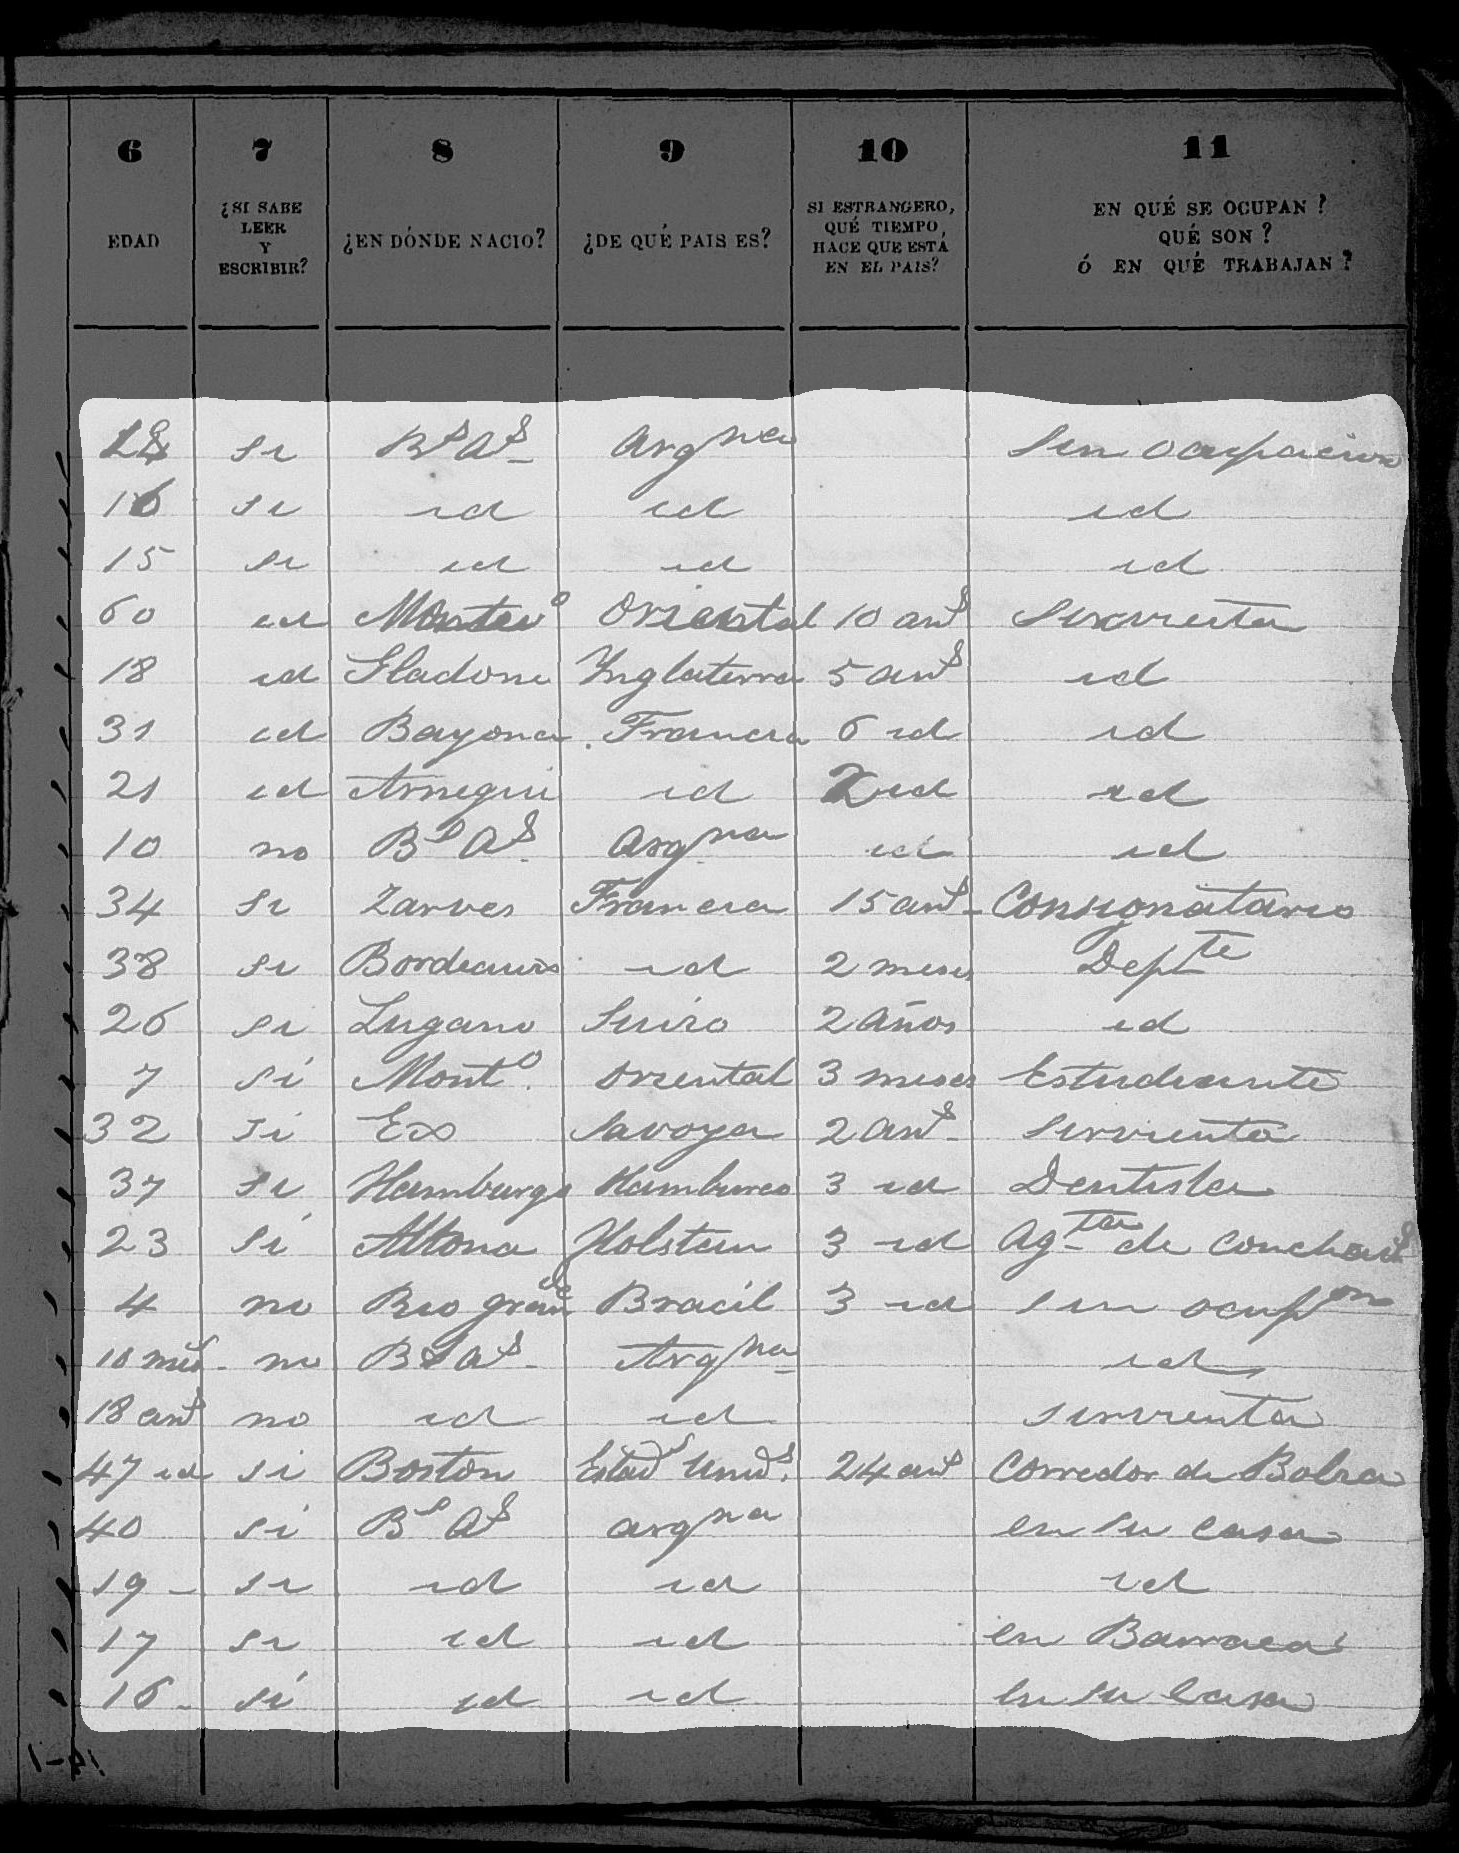 6 7 8 9 10 11
EDAD ¿SI SABE LEER Y ESCRIBIR? ¿EN DÓNDE NACIO? ¿DE QUÉ PAIS ES? SI ESTRANGERO, QUÉ TIEMPO, HACE QUE ESTÁ EN EL PAIS? EN QUÉ SE OCUPAN? QUÉ SON? Ó EN QUÉ TRABAJAN?
si Bs As Argna Sin ocupacion
16 si id id id
15 si id id id
60 id Montevo Oriental 10 ans Sirvienta
18 id Gladone Ynglaterra 5 ans id
31 id Bayona Francia 6 id id
21 id Arnegui id 2 id id
10 no Bs As Argna id id
34 si Zarves Francia 15 ans Consignatario
38 si Bordeaux id 2 meses Depte
26 si Lugano Suizo 2 años id
7 si Monto. Oriental 3 meses Estudiante
32 si Ex Savoya 2 ans Sirvienta
37 si Hamburgo Hamburgo 3 id Dentista
23 si Altona Holstein 3 id Agta de
4 no Rio grande Bracil 3 id Sin ocupon
10 mes no Bs As Argna id
18 ans no id id sirvienta
47 id si Boston Estads Unids. 24 ans Corredor de Bolsa
40 si Bs As argna en su casa
19 si id id id
17 si id id en Barracas
16 si id id en su casa